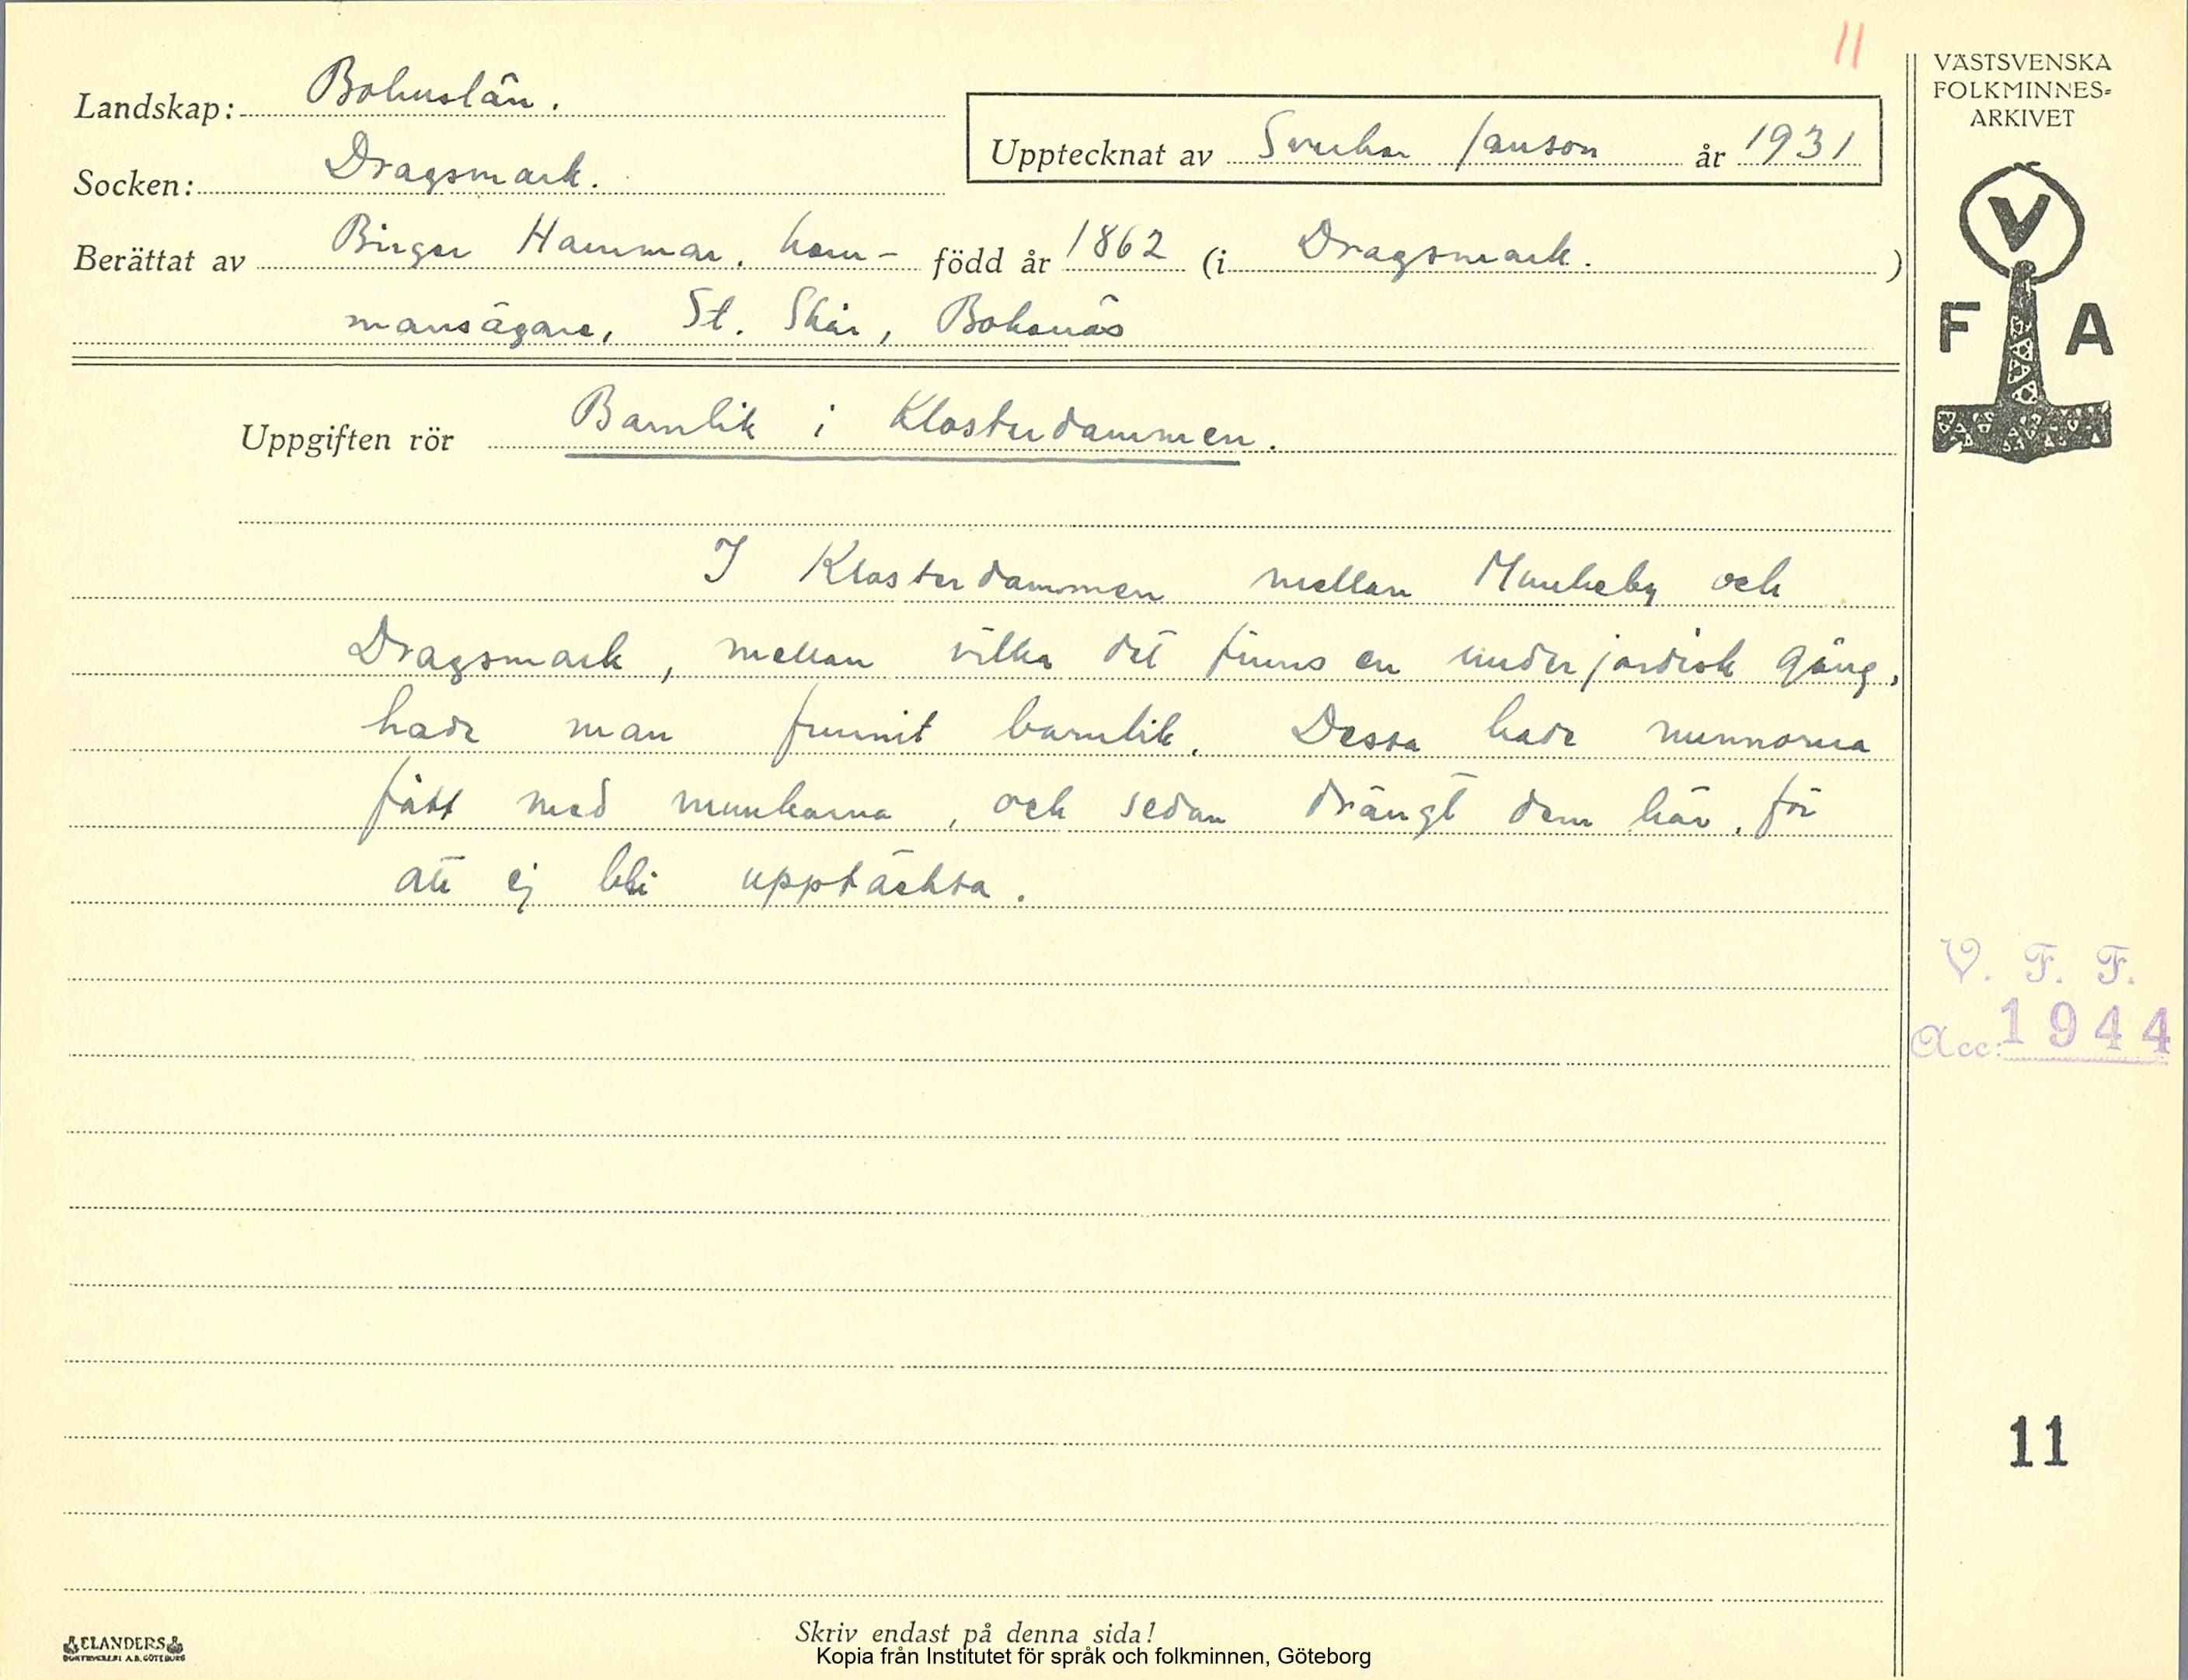 11
VÄSTSVENSKA
FOLKMINNES-
ARKIVET
Landskap: Bohuslän.
Upptecknat av Sverker Janson år 1931
Socken: Dragsmark.
Berättat av Birger Hammar, hem- född år 1862 (i Dragsmark.)
mansägare, St. Skär, Bokenäs
V
F A
Uppgiften rör Barnlik i Klosterdammen.
I Klosterdammen mellan Munkeby och
Dragsmark, mellan vilka det finns en underjordisk gång,
hade man funnit barnlik. Dessa hade nunnorna
fått med munkarna, och sedan drängt dem här, för
att ej bli upptäckta.
V. F. F.
Acc: 1944
11
Skriv endast på denna sida!
ELANDERS
BOKTRYCKERI A.B. GÖTEBORG
Kopia från Institutet för språk och folkminnen, Göteborg